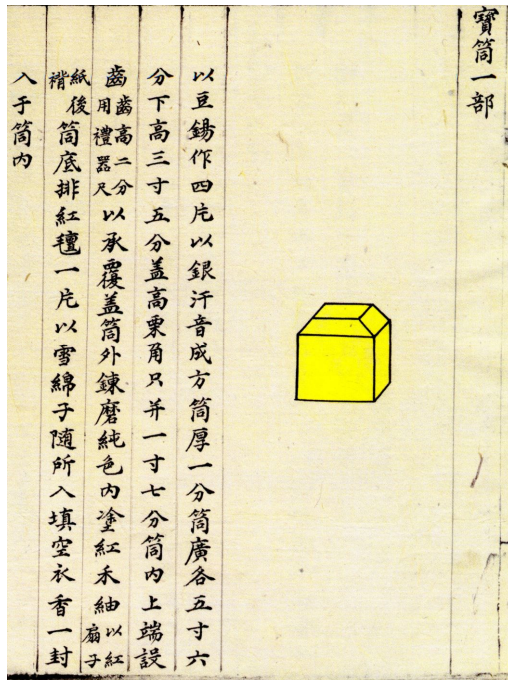 寶筒一部
以豆錫作四片以銀汗音成方筒厚一分筒廣各五寸六
分下高三寸五分盖高栗角只并一寸七分筒內上端設
齒齒高二分用禮器尺以承覆盖筒外鍊磨純色內塗紅禾紬以紅扇子
紙後褙筒底排紅氊一片以雪綿子随所入填空衣香一封
入于筒內